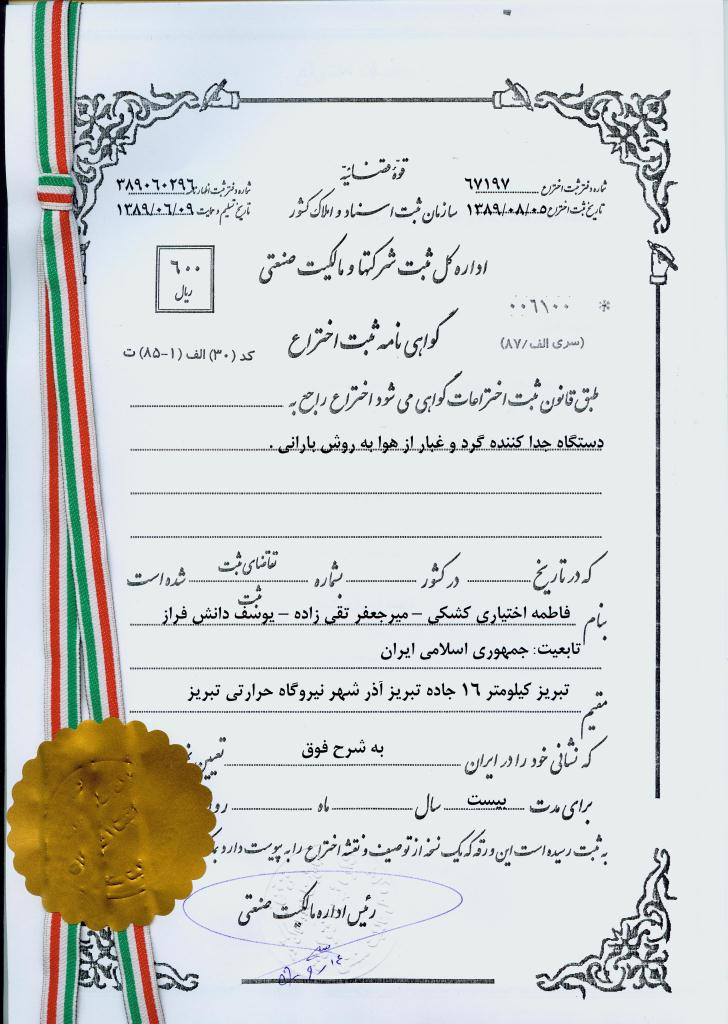 قوهٔ قضائیه
شماره دفتر ثبت اختراع ٦٧١٩٧
شماره دفتر ثبت اظهارنامه ٣٨٩٠٦٠٢٩٦
سازمان ثبت اسناد و املاک کشور
تاریخ ثبت اختراع ١٣٨٩/٠٨/٠٥
تاریخ تسلیم و حمایت ١٣٨٩/٠٦/٠٩
اداره کل ثبت شرکتها و مالکیت صنعتی
٦٠٠
ریال
* ٠٠٦١٠٠
(سری الف/٨٧)
گواهی نامه ثبت اختراع
کد (٣٠) الف (١-٨٥) ت
طبق قانون ثبت اختراعات گواهی می شود اختراع راجع به
دستگاه جدا کننده گرد و غبار از هوا به روش بارانی .
که در تاریخ در کشور بشماره تقاضای ثبت شده است
ثبت
بنام فاطمه اختیاری کشکی – میرجعفر تقی زاده – یوسف دانش فراز
تابعیت: جمهوری اسلامی ایران
مقیم تبریز کیلومتر ١٦ جاده تبریز آذر شهر نیروگاه حرارتی تبریز
که نشانی خود را در ایران به شرح فوق تعیین
برای مدت بیست سال ماه
به ثبت رسیده است این ورقه که یک نسخه از توصیف و نقشه اختراع را به پیوست دارد
رئیس اداره مالکیت صنعتی